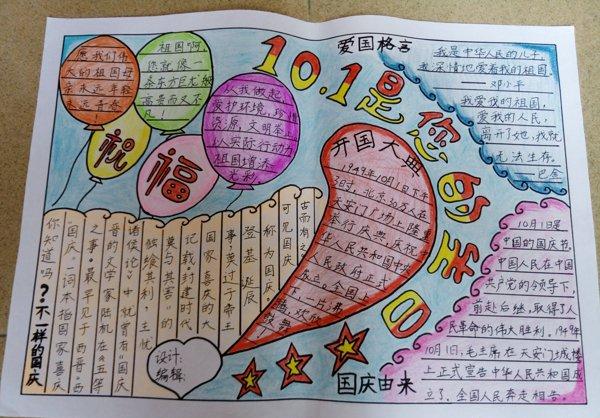 愿我们伟
大的祖国母
亲永远年轻
永远青春
!
祖国啊
你就像一
条东方巨龙
高贵而又不
凡!
从我做起,
爱护环境,珍惜
资源,文明参与
以实际行动为
祖国增添
光彩
祝
福
10.1是您的生日
爱国格言
我是中华人民的儿子,
我深情地爱着我的祖国
邓小平
我爱我的祖国,
爱我的人民,
离开了她,我就
无法生存.
—巴金
开国大典
1949年10月1日下午
3时,北京30万人在
天安门广场上隆重
举行庆典,庆祝
中华人民共和国中央
人民政府成
立。全国上
下,一片沸
腾,欢欣
鼓舞
10月1日是
中国的国庆节
中国人民在中国
共产党的领导下,
前赴后继,取得了人
民革命的伟大胜利。1949年
10月1日,毛主席在天安门城楼
上正式宣告中华人民共和国成
立了,全国人民奔走相告。
国庆由来
?·不一样的国庆
你知道吗
“国庆”一词本指国家喜庆
之事·最早见于西晋·西
晋的文学家陆机在《五等
诸侯论》中就曾有“国庆
独飨其利,主忧
莫与其害”的
记载·封建时代
国家喜庆的大
事,莫过于帝王
登基诞辰
称为国庆·
可见国庆
古而有之
设计:
编辑: